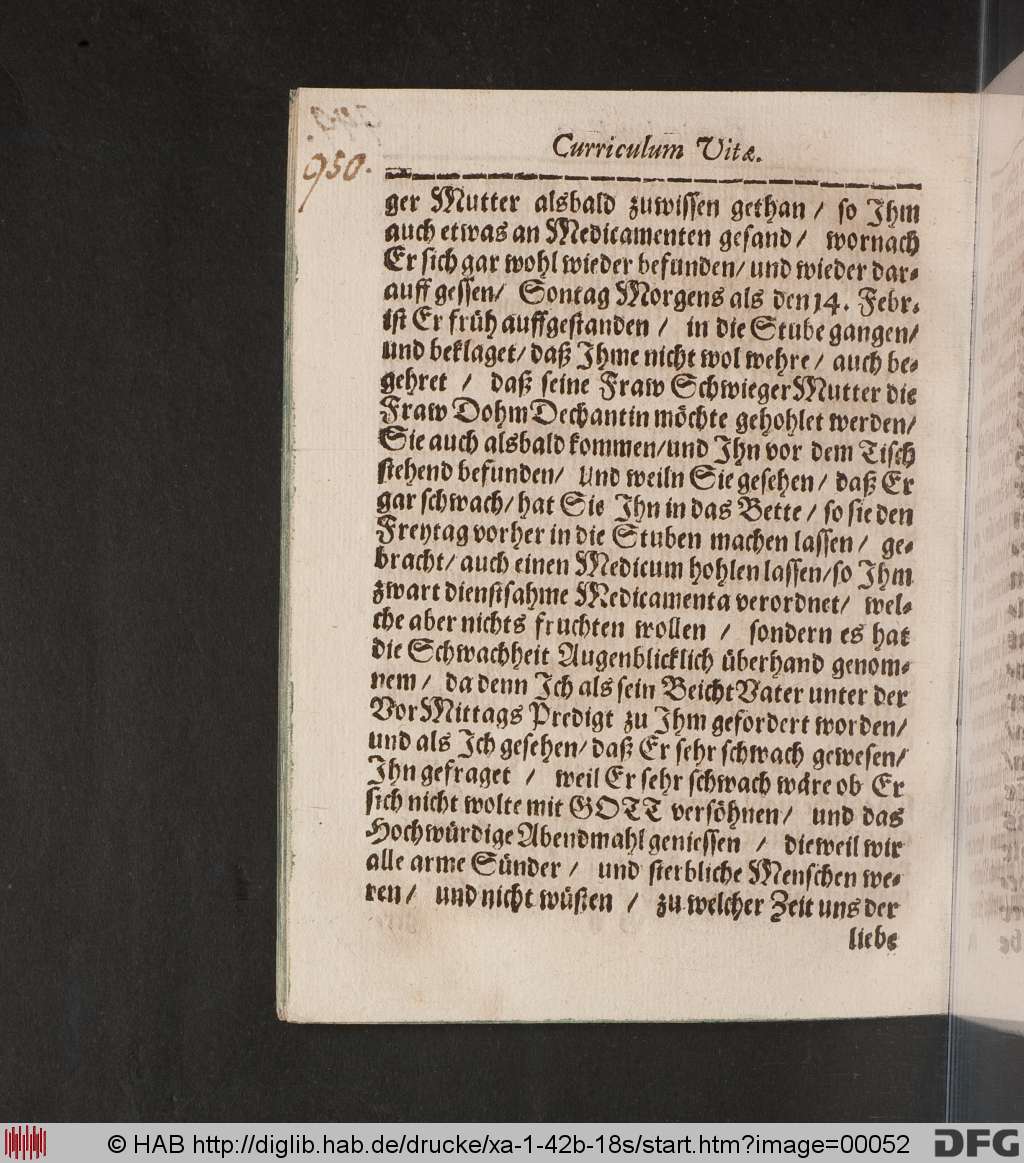 Curriculum Vitæ.
950.
ger Mutter alsbald zuwissen gethan / so Ihm
auch etwas an Medicamenten gesand / wornach
Er sich gar wohl wieder befunden / und wieder dar-
auff gessen / Sontag Morgens als den 14. Febr.
ist Er früh auffgestanden / in die Stube gangen /
und beklaget / daß Ihme nicht wol wehre / auch be-
gehret / daß seine Fraw SchwiegerMutter die
Fraw DohmDechantin möchte gehohlet werden /
Sie auch alsbald kommen / und Ihn vor dem Tisch
stehend befunden / Und weiln Sie gesehen / daß Er
gar schwach / hat Sie Ihn in das Bette / so sie den
Freytag vorher in die Stuben machen lassen / ge-
bracht / auch einen Medicum hohlen lassen / so Ihm
zwart dienstsahme Medicamenta verordnet / wel-
che aber nichts fruchten wollen / sondern es hat
die Schwachheit Augenblicklich überhand genom-
nem / da denn Ich als sein BeichtVater unter der
VorMittags Predigt zu Ihm gefordert worden /
und als Ich gesehen / daß Er sehr schwach gewesen /
Ihn gefraget / weil Er sehr schwach wäre ob Er
sich nicht wolte mit GOTT versöhnen / und das
Hochwürdige Abendmahl geniessen / dieweil wir
alle arme Sünder / und sterbliche Menschen we-
ren / und nicht wüsten / zu welcher Zeit uns der
liebe
© HAB http://diglib.hab.de/drucke/xa-1-42b-18s/start.htm?image=00052
DFG